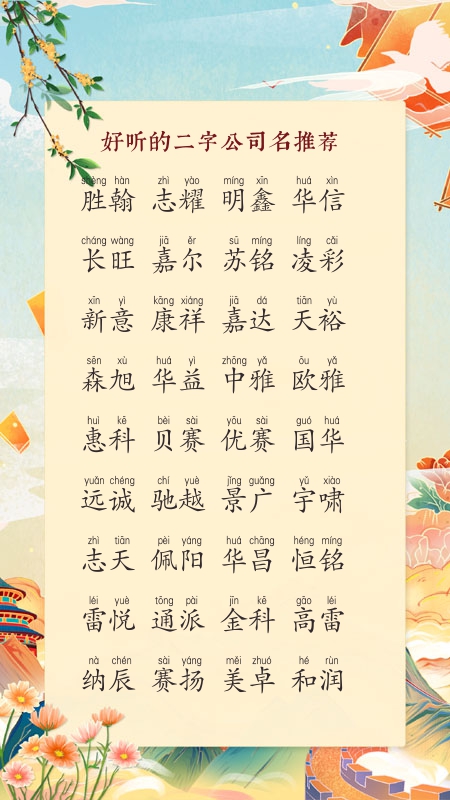 好听的二字公司名推荐
shèng hàn zhì yào míng xīn huá xìn
胜翰 志耀 明鑫 华信
cháng wàng jiā ěr sū míng líng cǎi
长旺 嘉尔 苏铭 凌彩
xīn yì kāng xiáng jiā dá tiān yù
新意 康祥 嘉达 天裕
sēn xù huá yì zhōng yǎ ōu yǎ
森旭 华益 中雅 欧雅
huì kē bèi sài yōu sài guó huá
惠科 贝赛 优赛 国华
yuǎn chéng chí yuè jǐng guǎng yǔ xiào
远诚 驰越 景广 宇啸
zhì tiān pèi yáng huá chāng héng míng
志天 佩阳 华昌 恒铭
léi yuè tōng pài jīn kē gāo léi
雷悦 通派 金科 高雷
nà chén sài yáng měi zhuó hé rùn
纳辰 赛扬 美卓 和润